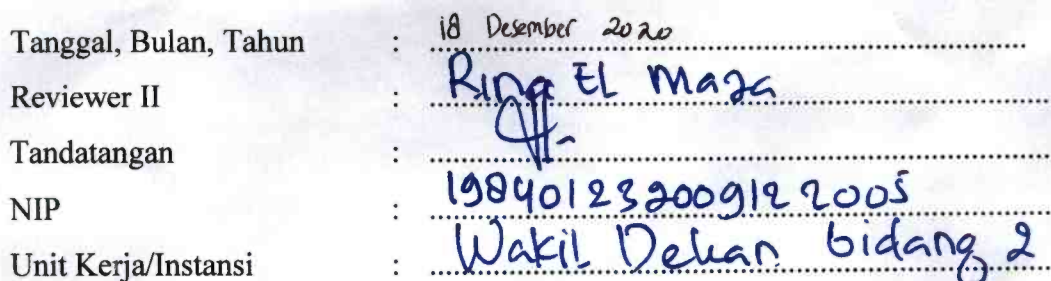 Tanggal, Bulan, Tahun : 18 Desember 2020
Reviewer II : Rina El Maza
Tandatangan :
NIP : 198401232009122005
Unit Kerja/Instansi : Wakil Dekan bidang 2